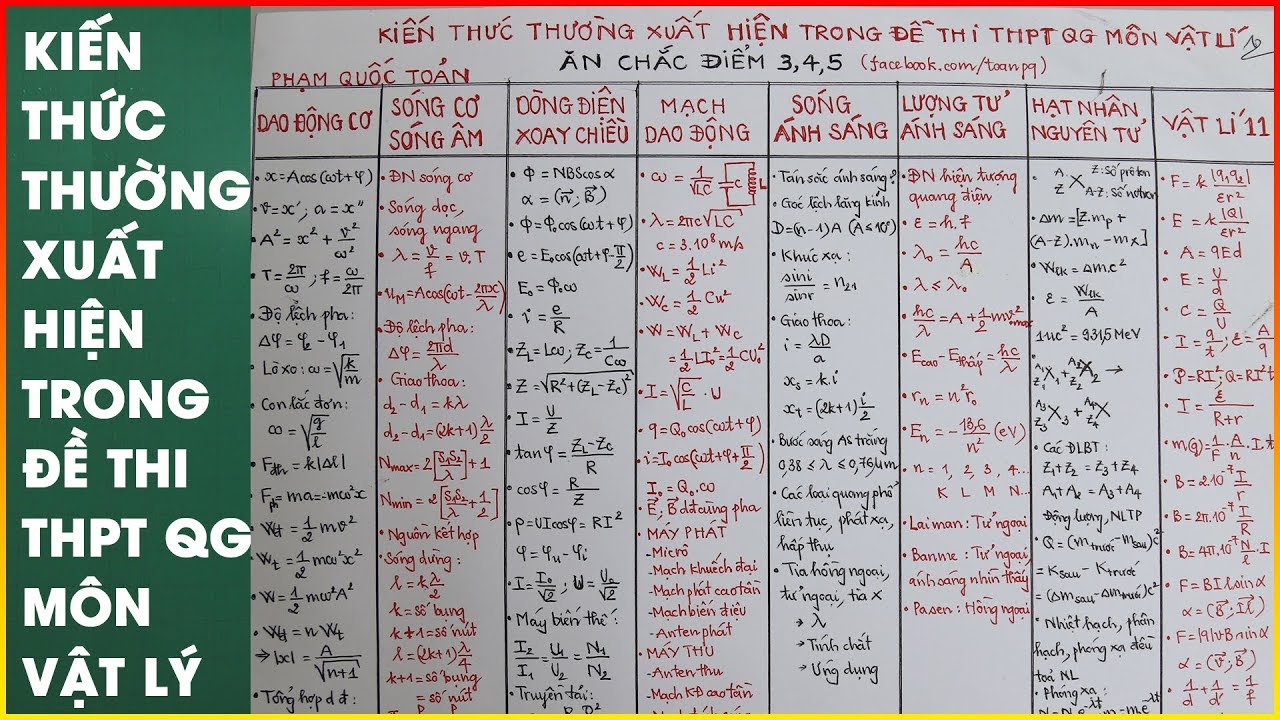 KIẾN
THỨC
THƯỜNG
XUẤT
HIỆN
TRONG
ĐỀ THI
THPT QG
MÔN
VẬT LÝ
KIẾN THỨC THƯỜNG XUẤT HIỆN TRONG ĐỀ THI THPT QG MÔN VẬT LÍ
PHẠM QUỐC TOẢN
ĂN CHẮC ĐIỂM 3,4,5 (facebook.com/toanpq)
DAO ĐỘNG CƠ
• x = Acos(ωt+φ)
• v = x'; a = x''
• A² = x² + v²/ω²
• T = 2π/ω; f = ω/2π
• Độ lệch pha:
Δφ = φ₂ - φ₁
• Lò xo: ω = √(k/m)
• Con lắc đơn:
ω = √(g/l)
• Fđh = k|Δl|
• Fph = ma = -mω²x
• Wđ = 1/2 mv²
• Wt = 1/2 mω²x²
• W = 1/2 mω²A²
• Wđ = nWt
→ |x| = A/√(n+1)
• Tổng hợp dđ:
SÓNG CƠ
SÓNG ÂM
• ĐN sóng cơ
• Sóng dọc,
sóng ngang
• λ = v/f = v.T
• uM = Acos(ωt - 2πx/λ)
• Độ lệch pha:
Δφ = 2πd/λ
• Giao thoa:
d₂ - d₁ = kλ
d₂ - d₁ = (2k+1) λ/2
Nmax = 2[S₁S₂/λ] + 1
Nmin = 2[S₁S₂/λ + 1/2]
• Nguồn kết hợp
• Sóng dừng:
l = k λ/2
k = số bụng
k+1 = số nút
l = (2k+1) λ/4
k+1 = số bụng
= số nút
DÒNG ĐIỆN
XOAY CHIỀU
• Φ = NBScosα
α = (n, B)
• Φ = Φ₀cos(ωt+φ)
• e = E₀cos(ωt+φ-π/2)
E₀ = Φ₀ω
• i = e/R
• ZL = Lω; ZC = 1/Cω
• Z = √(R²+(ZL-ZC)²)
• I = U/Z
• tanφ = (ZL-ZC)/R
• cosφ = R/Z
• P = UIcosφ = RI²
• φ = φu - φi
• I = I₀/√2; U = U₀/√2
• Máy biến thế:
I₂/I₁ = U₁/U₂ = N₁/N₂
• Truyền tải:
MẠCH
DAO ĐỘNG
• ω = 1/√LC
C
L
• λ = 2πc√LC
c = 3.10⁸ m/s
• WL = 1/2 Li²
• WC = 1/2 Cu²
• W = WL + WC
= 1/2 LI₀² = 1/2 CU₀²
• I = √(C/L) . U
• q = Q₀cos(ωt+φ)
• i = I₀cos(ωt+φ+π/2)
• I₀ = Q₀.ω
• E, B dđ cùng pha
• MÁY PHÁT
- Micrô
- Mạch khuếch đại
- Mạch phát cao tần
- Mạch biến điệu
- Anten phát
• MÁY THU
- Anten thu
- Mạch KĐ cao tần
SÓNG
ÁNH SÁNG
• Tán sắc ánh sáng?
• Góc lệch lăng kính
D = (n-1)A (A ≤ 10°)
• Khúc xạ:
sini/sinr = n₂₁
• Giao thoa:
i = λD/a
xs = k.i
xt = (2k+1) i/2
• Bước sóng AS trắng
0,38 ≤ λ ≤ 0,76μm
• Các loại quang phổ
liên tục, phát xạ,
hấp thụ
• Tia hồng ngoại,
tử ngoại, tia X
→ λ
→ Tính chất
→ Ứng dụng
LƯỢNG TỬ
ÁNH SÁNG
• ĐN hiện tượng
quang điện
• ε = h.f
• λ₀ = hc/A
• λ ≤ λ₀
• hc/λ = A + 1/2 mv²₀max
• Ecao - Ethấp = hc/λ
• rn = n²r₀
• En = -13,6/n² (eV)
• n = 1, 2, 3, 4...
K L M N...
• Laiman: Tử ngoại
• Banme: Tử ngoại,
ánh sáng nhìn thấy
• Pasen: Hồng ngoại
HẠT NHÂN
NGUYÊN TỬ
• A Z X Z: số prôton
A-Z: số nơtron
• Δm = [Z.mp +
(A-Z).mn - mX]
• Wlk = Δm.c²
• ε = Wlk/A
• 1uc² = 931,5 MeV
• A₁ Z₁ X₁ + A₂ Z₂ X₂ →
A₃ Z₃ X₃ + A₄ Z₄ X₄
• Các ĐLBT:
Z₁+Z₂ = Z₃+Z₄
A₁+A₂ = A₃+A₄
Động lượng, NLTP
• Q = (mtrước - msau)c²
= Ksau - Ktrước
= (Δmsau - Δmtrước)c²
• Nhiệt hạch, phân
hạch, phóng xạ đều
toả NL
• Phóng xạ:
VẬT LÍ 11
• F = k |q₁q₂|/εr²
• E = k |Q|/εr²
• A = qEd
• E = U/d
• C = Q/U
• I = q/t; ξ = A/q
• P = RI²; Q = RI²t
• I = ξ/(R+r)
• m(g) = 1/F . A/n . I.t
• B = 2.10⁻⁷ I/r
• B = 2π.10⁻⁷ I/R
• B = 4π.10⁻⁷ N/l . I
• F = BIlsinα
α = (B, Il)
• F = |q|vBsinα
α = (v, B)
• 1/d + 1/d' = 1/f